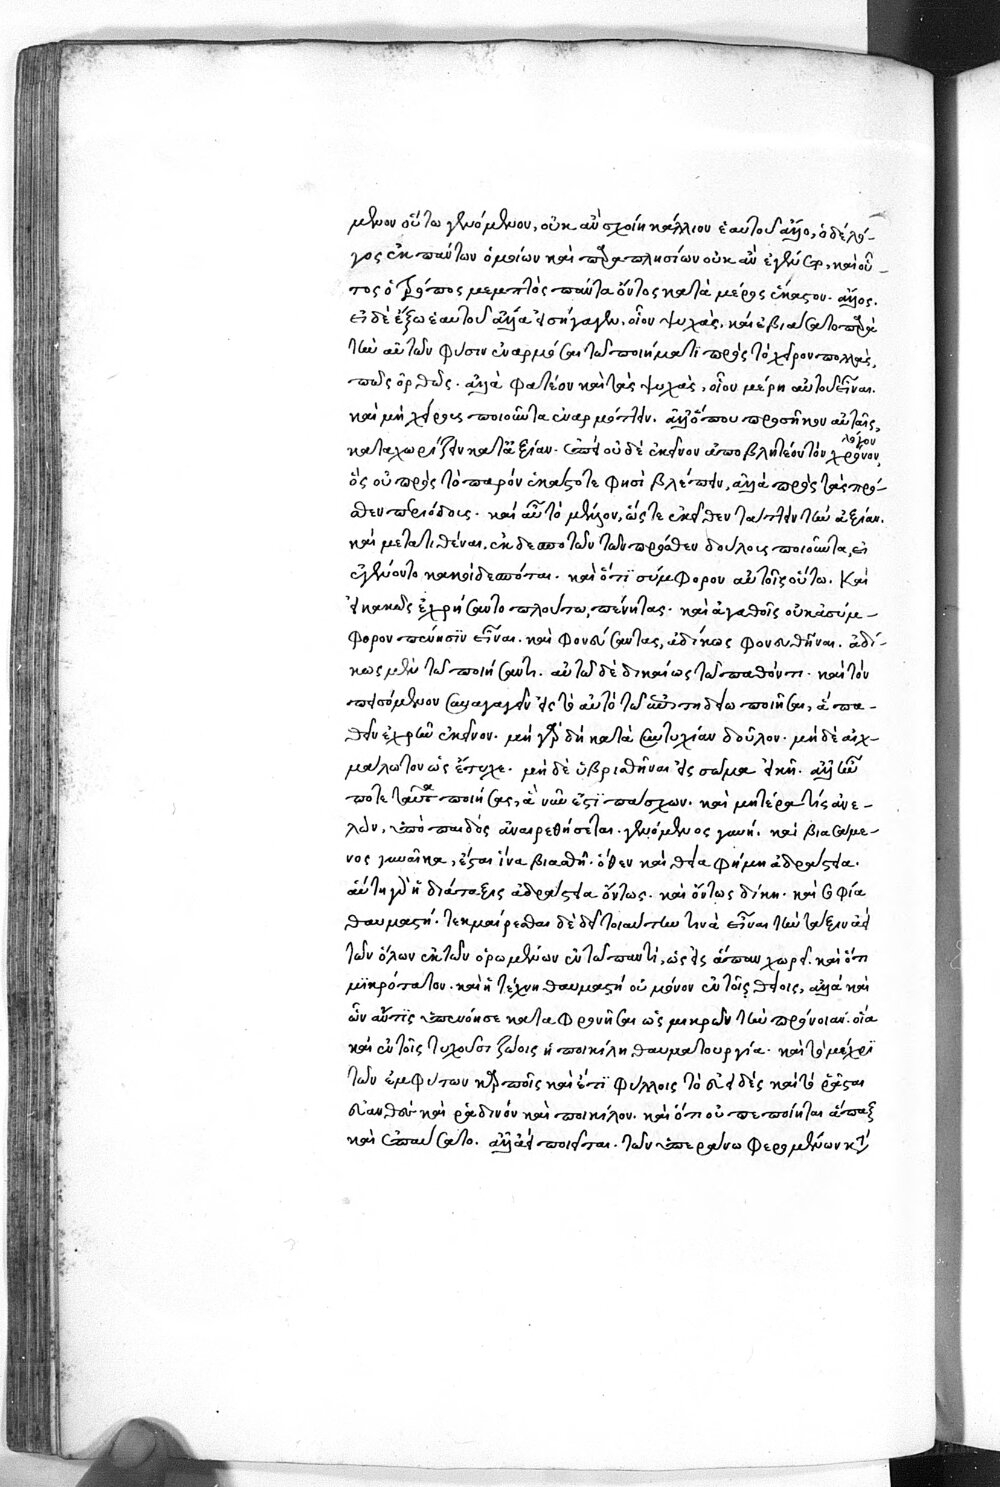 μενον οὕτω γενόμενον, οὐκ ἂν σχοίη κάλλιον ἑαυτοῦ ἄλλο, ὁ δὲ λό-
γος ἐκ πάντων ὁμοίων καὶ παραπλησίων οὐκ ἂν ἐγένετο, καὶ οὗ-
τος ὁ τρόπος μεμπτὸς πάντα ὄντος κατὰ μέρος ἕκαστον ἄλλος.
εἰ δὲ ἔξω ἑαυτοῦ ἄλλα εἰσήγαγεν, οἷον ψυχὰς, καὶ ἐβιάσατο παρὰ
τὴν αὐτῶν φύσιν ἐναρμόσαι τῷ ποιήματι πρὸς τὸ χεῖρον πολλὰς,
πῶς ὀρθῶς. ἀλλὰ φατέον καὶ τὰς ψυχὰς, οἷον μέρη αὐτοῦ εἶναι.
καὶ μὴ χείρους ποιοῦντα ἐναρμόττειν. ἀλλ' ὅπου προσῆκον αὐταῖς,
καταχωρίζειν κατ' ἀξίαν. ἐπεὶ οὐδὲ ἐκεῖνον ἀποβλητέον τὸν χρόνον, λόγον
ὃς οὐ πρὸς τὸ παρὸν ἑκάστοτε φησὶ βλέπειν, ἀλλὰ πρὸς τὰς πρό-
σθεν περιόδους. καὶ αὖ τὸ μέλλον, ὥστε ἐκεῖθεν τάττειν τὴν ἀξίαν.
καὶ μετατιθέναι, ἐκ δεσποτῶν τῶν πρόσθεν δούλους ποιοῦντα, εἰ
ἐγένοντο κακοὶ δεσπόται. καὶ ὅτι σύμφορον αὐτοῖς οὕτω. Καὶ
εἰ κακῶς ἐχρήσαντο πλούτῳ, πένητας. καὶ ἀγαθοῖς οὐκ ἀσύμ-
φορον πένησιν εἶναι. καὶ φονεύσαντας, ἀδίκως φονευθῆναι. ἀδί-
κως μὲν τῷ ποιήσαντι. αὐτῷ δὲ δικαίως τῷ παθόντι. καὶ τὸν
πεισόμενον συναγαγεῖν εἰς τὸ αὐτὸ τῷ ἐπιτηδείῳ ποιῆσαι, ἃ πα-
θεῖν ἐχρῆν ἐκεῖνον. μὴ γὰρ δὴ κατὰ συντυχίαν δοῦλον. μηδὲ αἰχ-
μάλωτον ὡς ἔτυχε. μηδὲ ὑβρισθῆναι εἰς σῶμα εἰκῆ. ἀλλ' ἦν
ποτε ταῦτα ποιήσας, ἃ νῦν ἐστὶ πάσχων. καὶ μητέρα τὶς ἀνε-
λὼν, ὑπὸ παιδὸς ἀναιρεθήσεται. γενόμενος γυνή. καὶ βιασάμε-
νος γυναῖκα, ἔσται ἵνα βιασθῇ. ὅθεν καὶ θεία φήμη ἀδράστεια.
αὕτη γὰρ ἡ διάταξις ἀδράστεια ὄντως. καὶ ὄντως δίκη. καὶ σοφία
θαυμαστή. τεκμαίρεσθαι δὲ δεῖ τοιαύτην τινὰ εἶναι τὴν τάξιν ἀεὶ
τῶν ὅλων ἐκ τῶν ὁρωμένων ἐν τῷ παντὶ, ὡς εἰς ἅπαν χωρεῖ. καὶ ὅτι
μικρότατον. καὶ ἡ τέχνη θαυμαστὴ οὐ μόνον ἐν τοῖς θείοις, ἀλλὰ καὶ
ὧν ἄν τις ὑπενόησε καταφρονῆσαι ὡς μικρῶν τὴν πρόνοιαν. οἵα
καὶ ἐν τοῖς τυχοῦσι ζώοις ἡ ποικίλη θαυματουργία. καὶ τὸ μέχρι
τῶν ἐμφύτων καρποῖς καὶ ἐπὶ φύλλοις τὸ εὐειδὲς καὶ τὸ ῥᾷστα
εὐανθὲς καὶ ῥαδινὸν καὶ ποικίλον. καὶ ὅτι οὐ πεποίηται ἅπαξ
καὶ ἐπαύσατο. ἀλλ' ἀεὶ ποιεῖται. τῶν ὑπεράνω φερομένων κατὰ